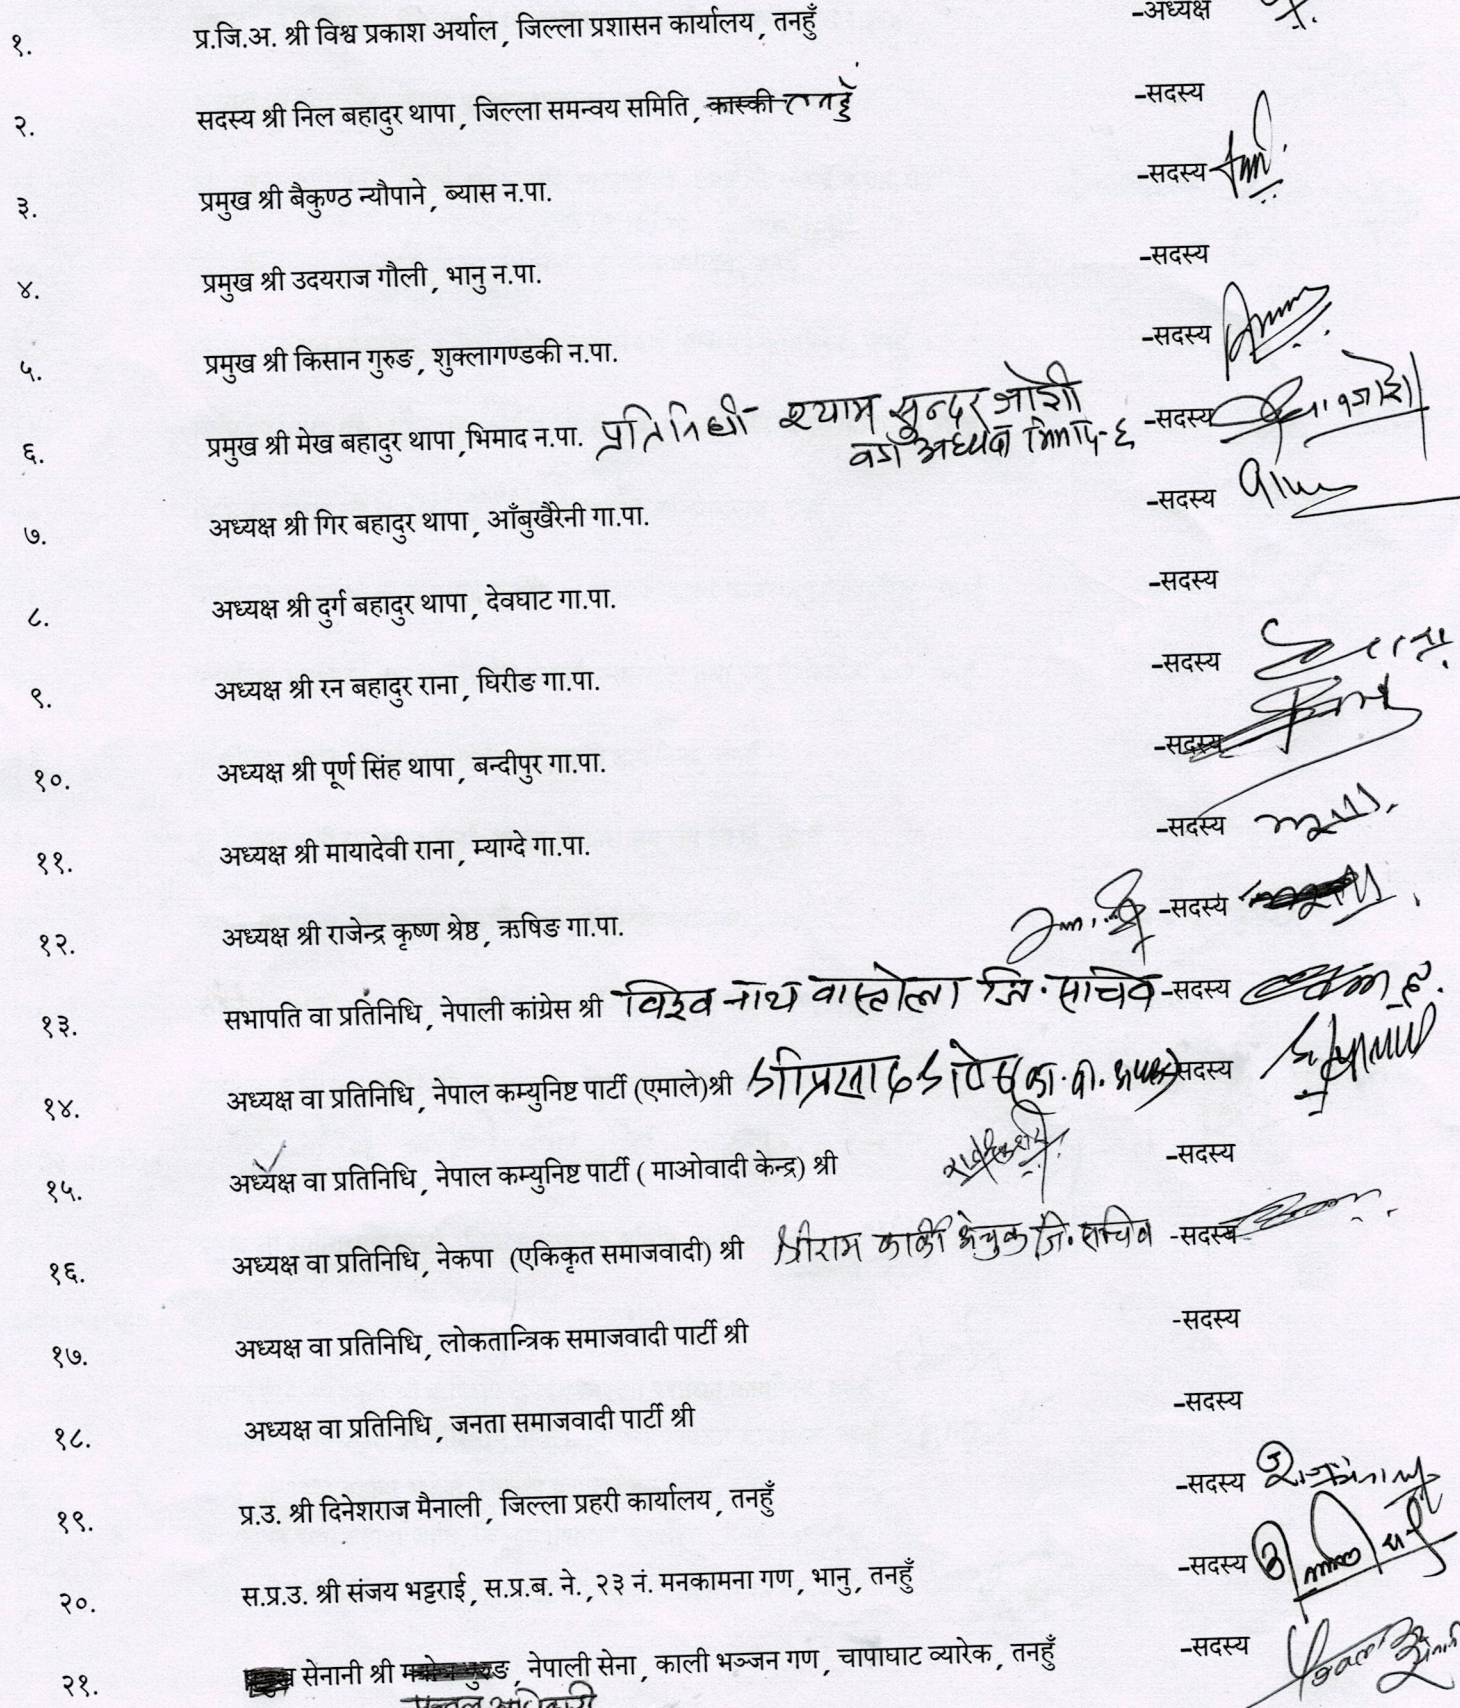 १. प्र.जि.अ. श्री विश्व प्रकाश अर्याल, जिल्ला प्रशासन कार्यालय, तनहुँ -अध्यक्ष
२. सदस्य श्री निल बहादुर थापा, जिल्ला समन्वय समिति, कास्की तनहुँ -सदस्य
३. प्रमुख श्री बैकुण्ठ न्यौपाने, ब्यास न.पा. -सदस्य
४. प्रमुख श्री उदयराज गौली, भानु न.पा. -सदस्य
५. प्रमुख श्री किसान गुरुङ, शुक्लागण्डकी न.पा. -सदस्य
६. प्रमुख श्री मेख बहादुर थापा,भिमाद न.पा. प्रतिनिधी श्याम सुन्दर जोशी -सदस्य
वडा अध्यक्ष भिमाद-६
७. अध्यक्ष श्री गिर बहादुर थापा, आँबुखैरेनी गा.पा. -सदस्य
८. अध्यक्ष श्री दुर्ग बहादुर थापा, देवघाट गा.पा. -सदस्य
९. अध्यक्ष श्री रन बहादुर राना, घिरीङ गा.पा. -सदस्य
१०. अध्यक्ष श्री पूर्ण सिंह थापा, बन्दीपुर गा.पा. -सदस्य
११. अध्यक्ष श्री मायादेवी राना, म्याग्दे गा.पा. -सदस्य
१२. अध्यक्ष श्री राजेन्द्र कृष्ण श्रेष्ठ, ऋषिङ गा.पा. -सदस्य
१३. सभापति वा प्रतिनिधि, नेपाली कांग्रेस श्री विश्व नाथ वास्तोला जि. सचिव -सदस्य
१४. अध्यक्ष वा प्रतिनिधि, नेपाल कम्युनिष्ट पार्टी (एमाले)श्री श्रीप्रसाद श्रेष्ठ -सदस्य
१५. अध्यक्ष वा प्रतिनिधि, नेपाल कम्युनिष्ट पार्टी ( माओवादी केन्द्र) श्री -सदस्य
१६. अध्यक्ष वा प्रतिनिधि, नेकपा (एकिकृत समाजवादी) श्री श्रीराम कार्की जि. सचिव -सदस्य
१७. अध्यक्ष वा प्रतिनिधि, लोकतान्त्रिक समाजवादी पार्टी श्री -सदस्य
१८. अध्यक्ष वा प्रतिनिधि, जनता समाजवादी पार्टी श्री -सदस्य
१९. प्र.उ. श्री दिनेशराज मैनाली, जिल्ला प्रहरी कार्यालय, तनहुँ -सदस्य
२०. स.प्र.उ. श्री संजय भट्टराई, स.प्र.ब. ने., २३ नं. मनकामना गण, भानु, तनहुँ -सदस्य
२१. सेनानी श्री नेपाली सेना, काली भञ्जन गण, चापाघाट व्यारेक, तनहुँ -सदस्य
अधिकारी